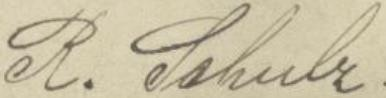 R. Schulz.